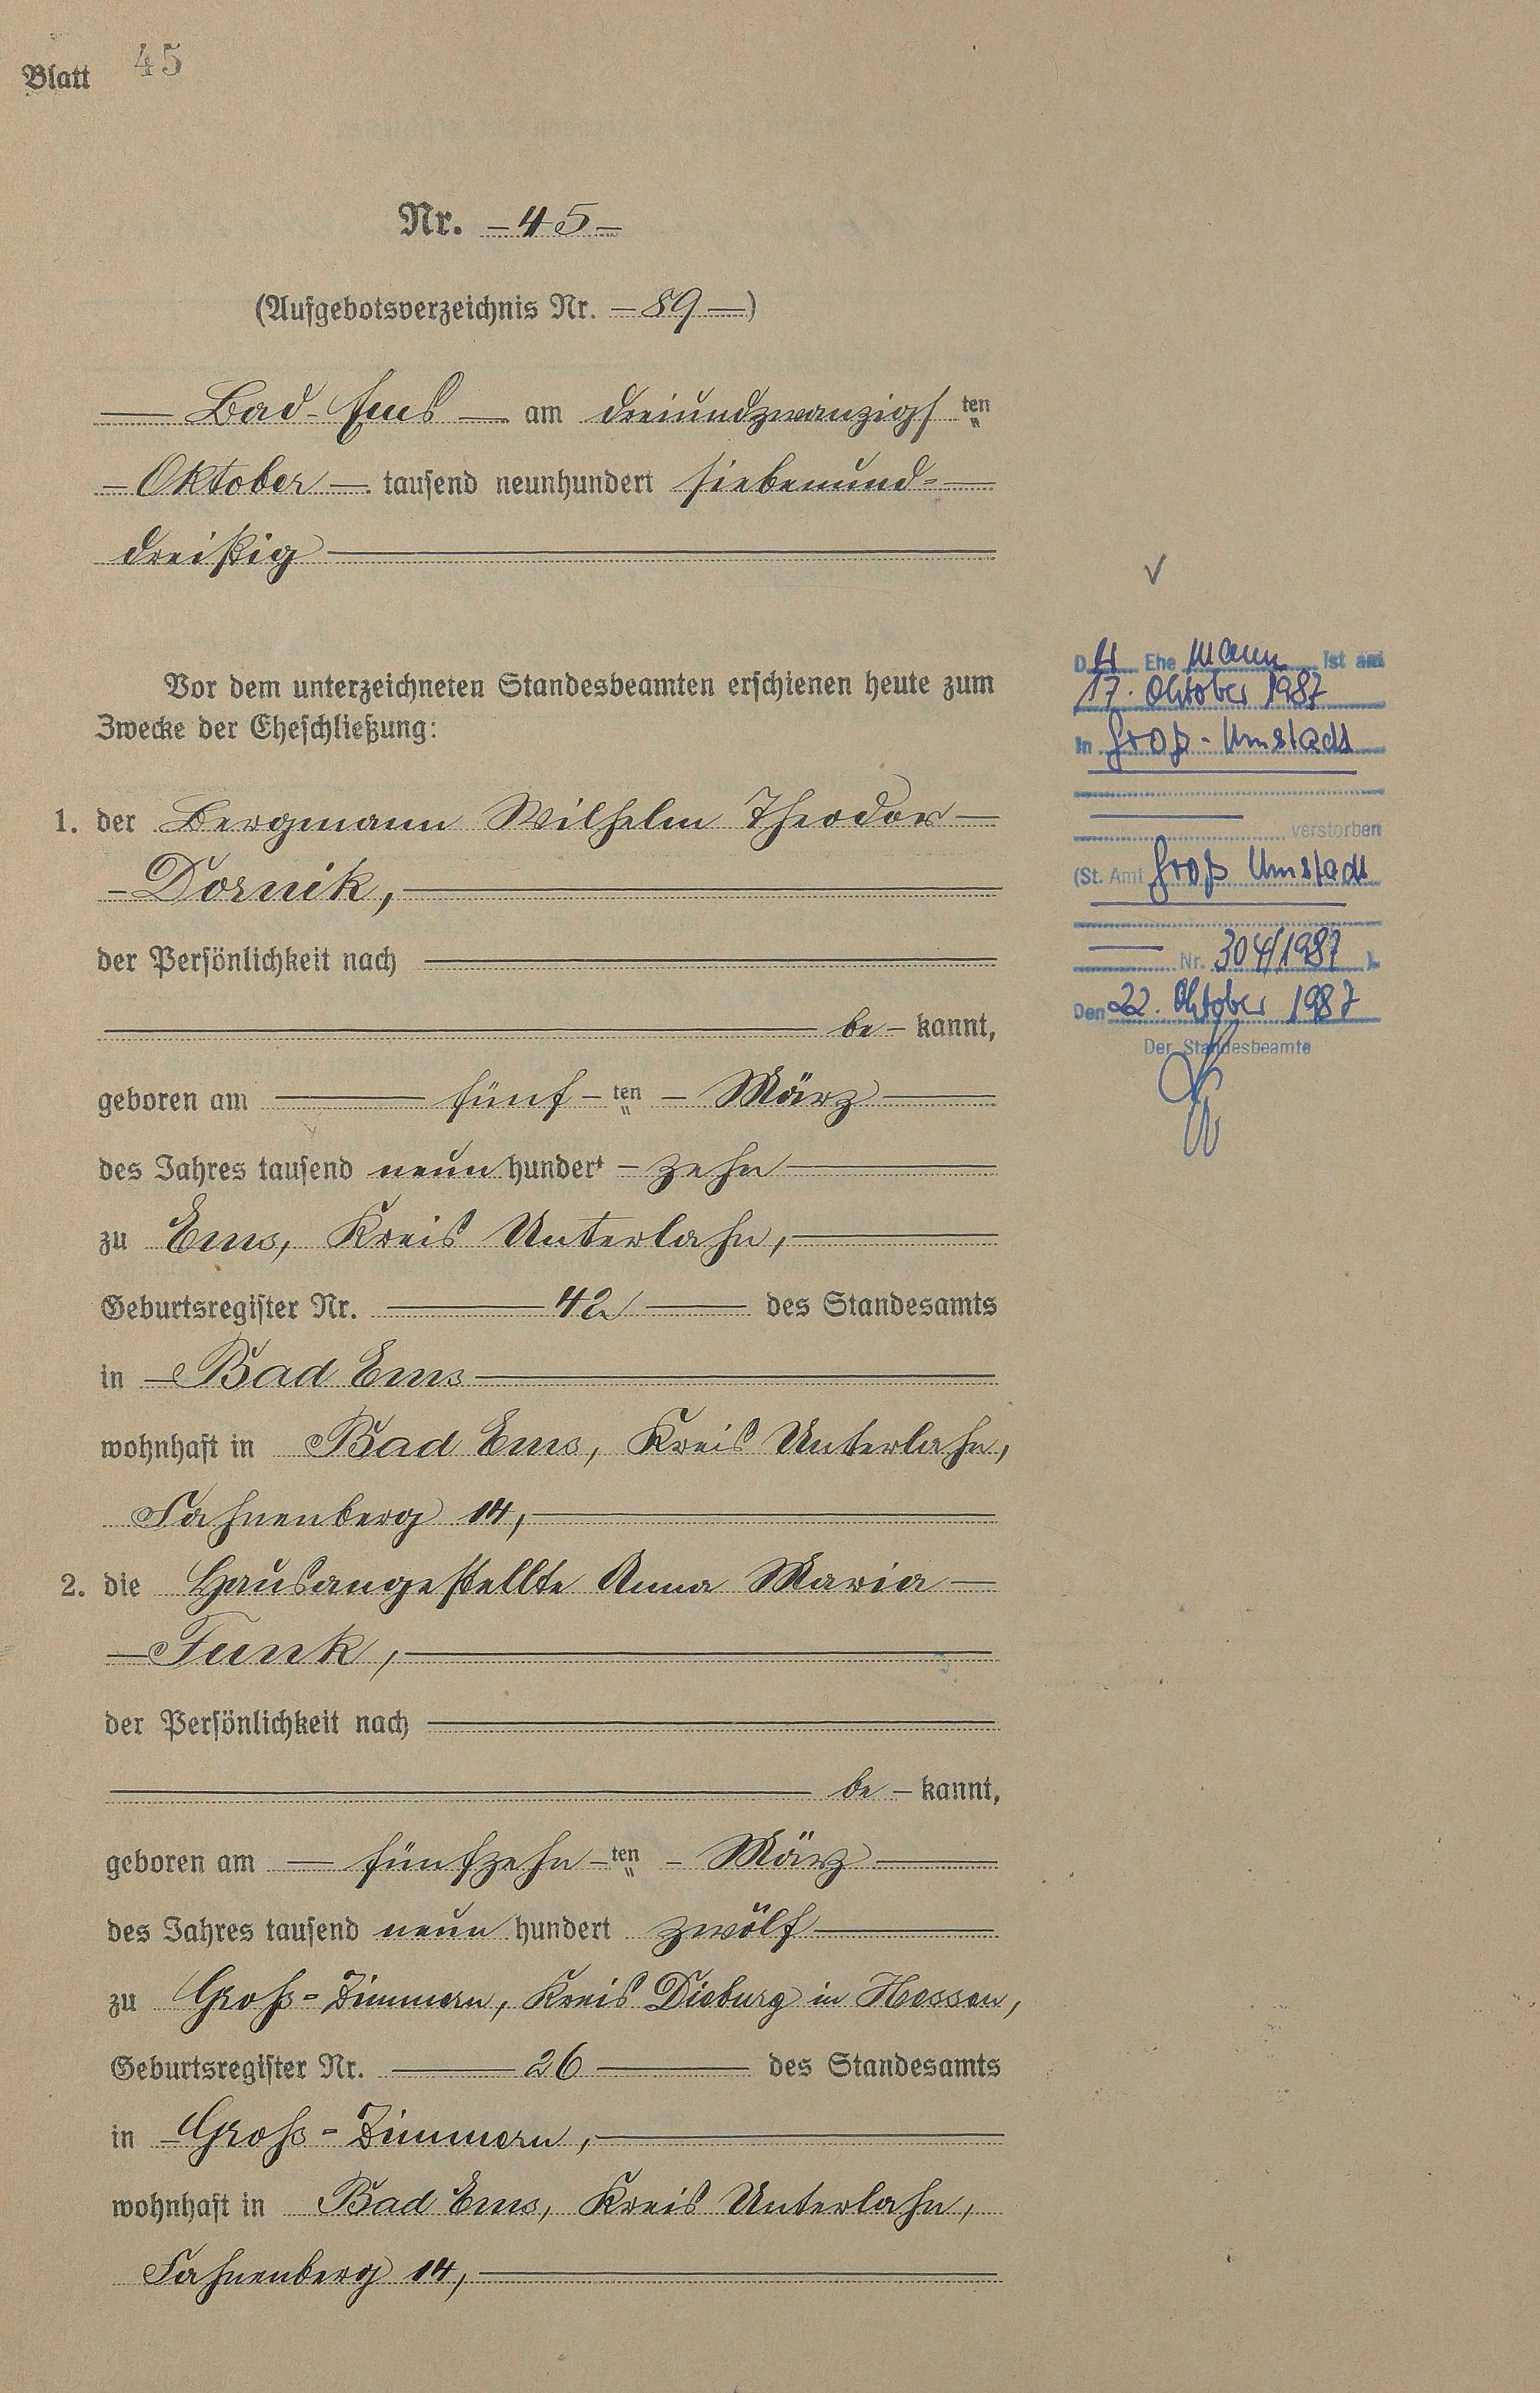 Blatt 45
Nr. – 45 –
(Aufgebotsverzeichnis Nr. – 89 –)
— Bad-Ems — am dreiundzwanzigsten
– Oktober – tausend neunhundert siebenund-
dreißig
Vor dem unterzeichneten Standesbeamten erschienen heute zum
Zwecke der Eheschließung:
1. der Bergmann Wilhelm Theodor –
– Dornik,
der Persönlichkeit nach
be – kannt,
geboren am — fünf – ten – März
des Jahres tausend neunhundert – zehn
zu Ems, Kreis Unterlahn,
Geburtsregister Nr. — 42 — des Standesamts
in – Bad Ems
wohnhaft in Bad Ems, Kreis Unterlahn,
Fahnenberg 14,
2. die Hausangestellte Anna Maria –
– Funk,
der Persönlichkeit nach
be – kannt,
geboren am – fünfzehn – ten – März
des Jahres tausend neun hundert zwölf
zu Groß-Zimmern, Kreis Dieburg in Hessen,
Geburtsregister Nr. — 26 — des Standesamts
in Groß-Zimmern,
wohnhaft in Bad Ems, Kreis Unterlahn,
Fahnenberg 14,
Der Ehe Mann ist am
17. Oktober 1987
in Groß-Umstadt
verstorben
(St. Amt Groß Umstadt
Nr. 304/1987 ).
Den 22. Oktober 1987
Der Standesbeamte